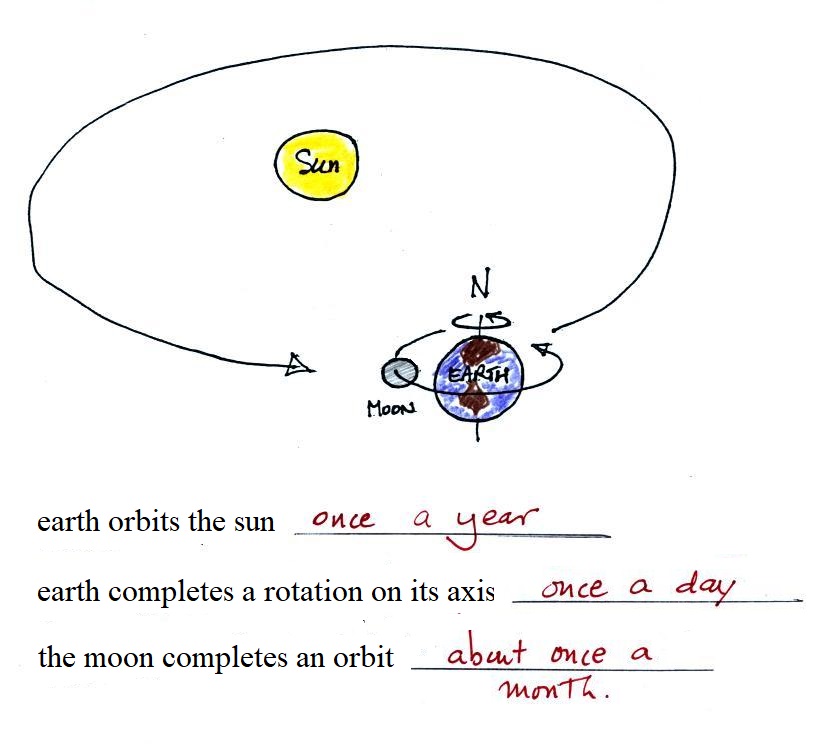 Sun
N
EARTH
MOON
earth orbits the sun once a year
earth completes a rotation on its axis once a day
the moon completes an orbit about once a
month.